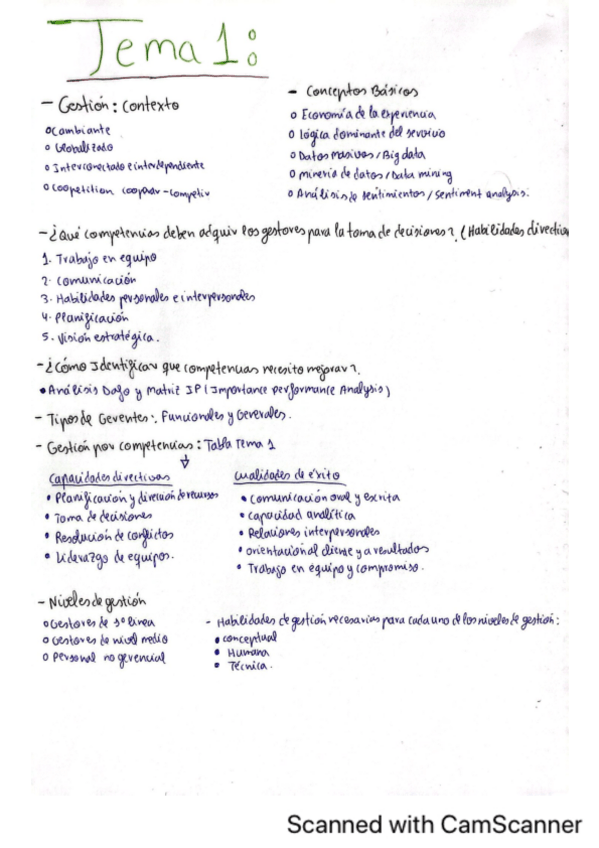 Tema 1:
- Gestión: Contexto
o Cambiante
o Globalizado
o Interconectado e interdependiente
o Coopetition cooperar-competir
- Conceptos Básicos
o Economía de la experiencia
o Lógica dominante del servicio
o Datos masivos / Big data
o minería de datos / Data mining
o Análisis de sentimientos / sentiment analysis.
- ¿Qué competencias deben adquirir los gestores para la toma de decisiones?. (Habilidades directiva
1. Trabajo en equipo
2. Comunicación
3. Habilidades personales e interpersonales
4. Planificación
5. Visión estratégica.
- ¿Cómo Identificar que competencias necesito mejorar?.
• Análisis Dafo y Matriz IP (Importance performance Analysis)
- Tipos de Gerentes: Funcionales y Generales.
- Gestión por competencias: Tabla Tema 1
Capacidades directivas
• Planificación y dirección de recursos
• Toma de decisiones
• Resolución de conflictos
• Liderazgo de equipos.
Cualidades de éxito
• Comunicación oral y escrita
• capacidad analítica
• Relaciones interpersonales
• orientación al cliente y a resultados
• Trabajo en equipo y compromiso.
- Niveles de gestión
o Gestores de 1º línea
o Gestores de nivel medio
o Personal no gerencial
- Habilidades de gestión necesarias para cada uno de los niveles de gestión:
• conceptual
• Humana
• Técnica.
Scanned with CamScanner